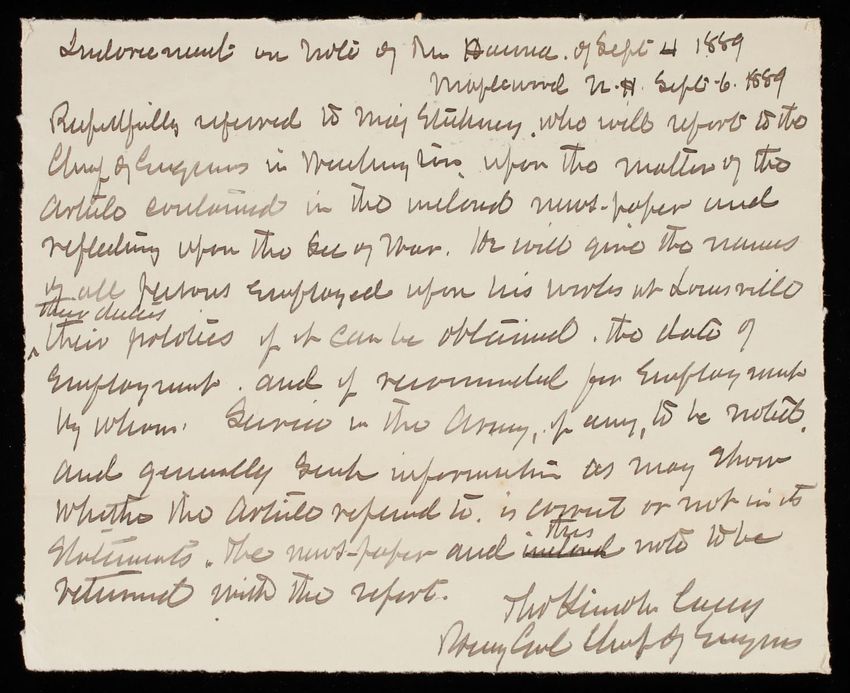 Indorsement on note of Mr Hanna. of Sept 4 1889
Maplewood N.H. Sept 6. 1889
Respectfully referred to Maj Stickney, who will report to the
Chief of Engineers in Washington, upon the matter of the
Article contained in the inclosed news-paper and
reflecting upon the Sec of War. He will give the names
of all persons employed upon his works at Louisville
their duties
their politics if it can be obtained. the date of
employment. and if recommended for Employment
by whom. Service in the Army, if any, to be noted.
and generally such information as may show
whether the Article referred to. is correct or not in its
Statements. The news-paper and inclosed this note to be
returned with the report.
Thos Lincoln Casey
Brig Genl Chief of Engrs